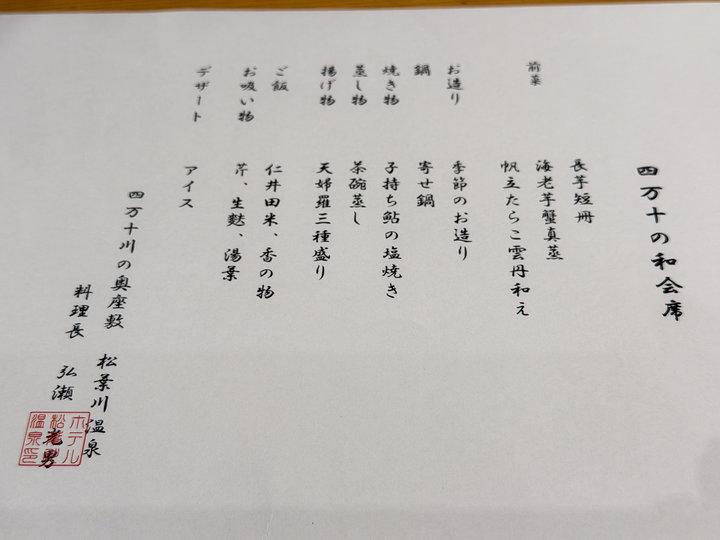 四万十の和会席
前菜
長芋短冊
海老芋蟹真蒸
帆立たらこ雲丹和え
お造り 季節のお造り
鍋 寄せ鍋
焼き物 子持ち鮎の塩焼き
蒸し物 茶碗蒸し
揚げ物 天婦羅三種盛り
ご飯 仁井田米、香の物
お吸い物 芹、生麩、湯葉
デザート アイス
四万十川の奥座敷 松葉川温泉
料理長 弘瀬 光男
ホテル
松葉川
温泉印